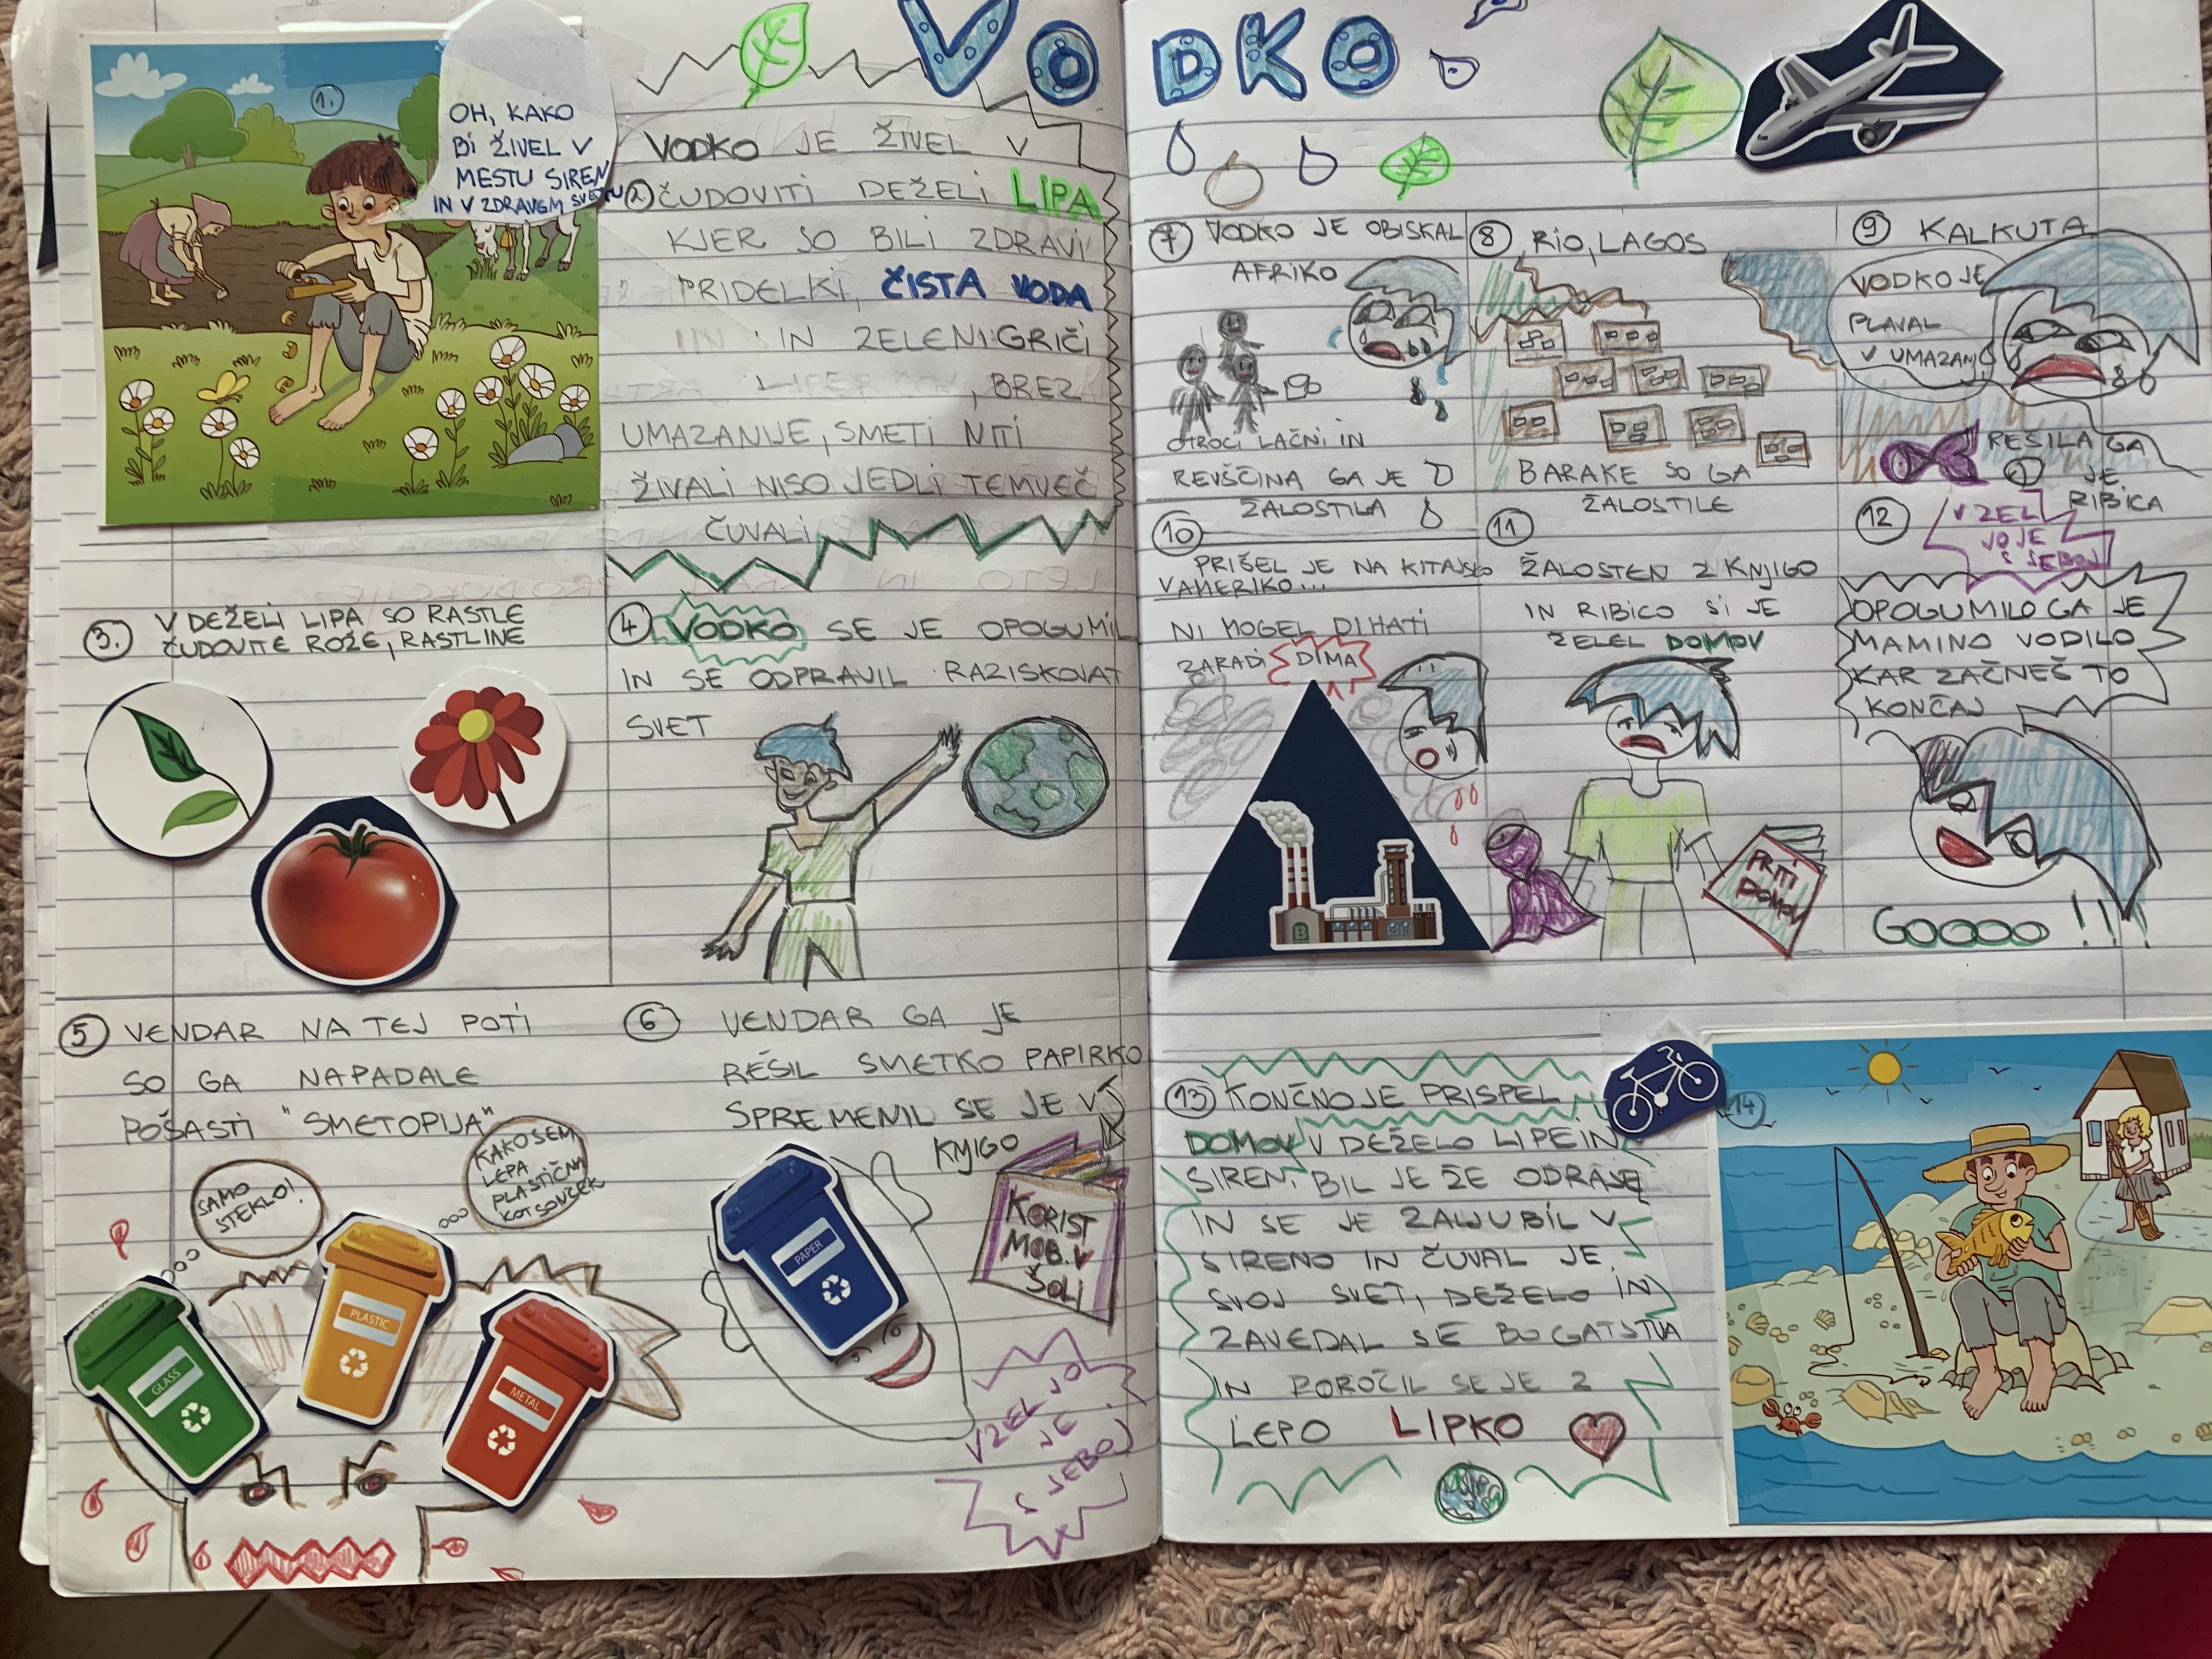 VODKO
1.
OH, KAKO
BI ŽIVEL V
MESTU SIREN
IN V ZDRAVEM SVETU
2.
VODKO JE ŽIVEL V
ČUDOVITI DEŽELI LIPA
KJER SO BILI ZDRAVI
PRIDELKI, ČISTA VODA
IN ZELENI GRIČI
, BREZ
UMAZANIJE, SMETI NITI
ŽIVALI NISO JEDLI TEMVEČ
ČUVALI
3.
V DEŽELI LIPA SO RASTLE
ČUDOVITE ROŽE, RASTLINE
4
VODKO SE JE OPOGUMIL
IN SE ODPRAVIL RAZISKOVAT
SVET
5
VENDAR NA TEJ POTI
SO GA NAPADALE
POŠASTI "SMETOPIJA"
SAMO
STEKLO!
KAKO SEM
LEPA
PLASTIČNA
GLASS
PLASTIC
METAL
6
VENDAR GA JE
REŠIL SMETKO PAPIRKO
SPREMENIL SE JE V
KNJIGO
PAPER
KORIST
MOB. V
ŠOLI
VZEL JO
JE
S SEBOJ
7
VODKO JE OBISKAL
AFRIKO
OTROCI LAČNI IN
REVŠČINA GA JE
ŽALOSTILA
8
RIO, LAGOS
BARAKE SO GA
ŽALOSTILE
9
KALKUTA
VODKO JE
PLAVAL
V UMAZANI
REŠILA GA
JE
RIBICA
VZEL
JO JE
S SEBOJ
10
PRIŠEL JE NA KITAJSKO
V AMERIKO...
NI MOGEL DIHATI
ZARADI DIMA
11
ŽALOSTEN Z KNJIGO
IN RIBICO SI JE
ŽELEL DOMOV
PRITI
DOMOV
12
OPOGUMILO GA JE
MAMINO VODILO
KAR ZAČNEŠ TO
KONČAJ
GOOOO!!!
13
KONČNO JE PRISPEL
DOMOV V DEŽELO LIPE IN
SIREN. BIL JE ŽE ODRASEL
IN SE JE ZALJUBIL V
SIRENO IN ČUVAL JE
SVOJ SVET, DEŽELO IN
ZAVEDAL SE BOGATSTVA
IN POROČIL SE JE Z
LEPO LIPKO
14